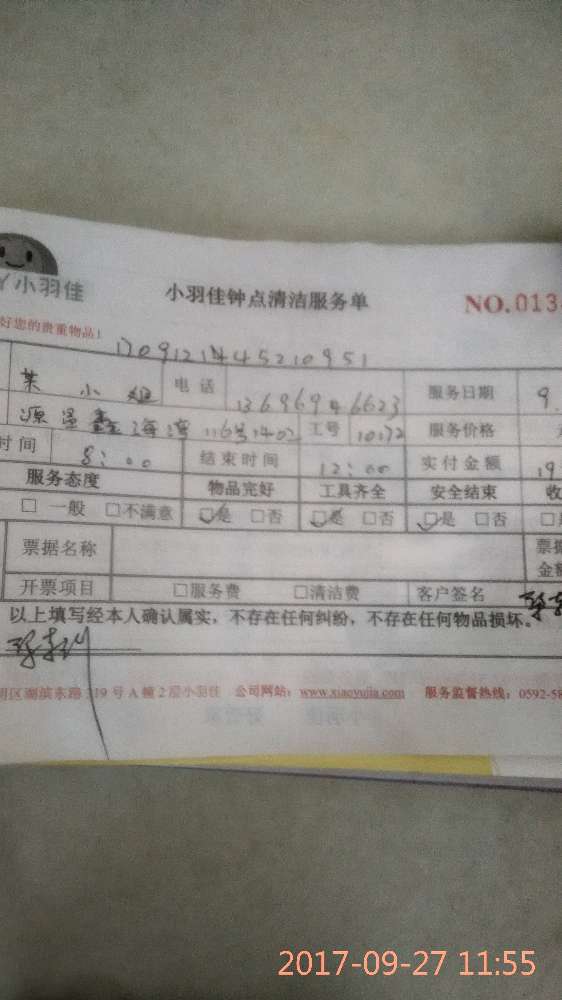 小羽佳
小羽佳钟点清洁服务单
NO.013
好您的贵重物品！
小姐 电话 13696946623 服务日期 9.
源 鑫海湾 116号1402 工号 10172 服务价格
时间 8：00 结束时间 12：00 实付金额 19
服务态度 物品完好 工具齐全 安全结束 收
□ 一般 □不满意 ☑是 □否 ☑是 □否 ☑是 □否
票据名称 票据
金额
开票项目 □服务费 □清洁费 客户签名
以上填写经本人确认属实，不存在任何纠纷，不存在任何物品损坏。
明区湖滨东路319号A幢2层小羽佳 公司网站：www.xiaoyujia.com 服务监督热线：0592-58
2017-09-27 11:55